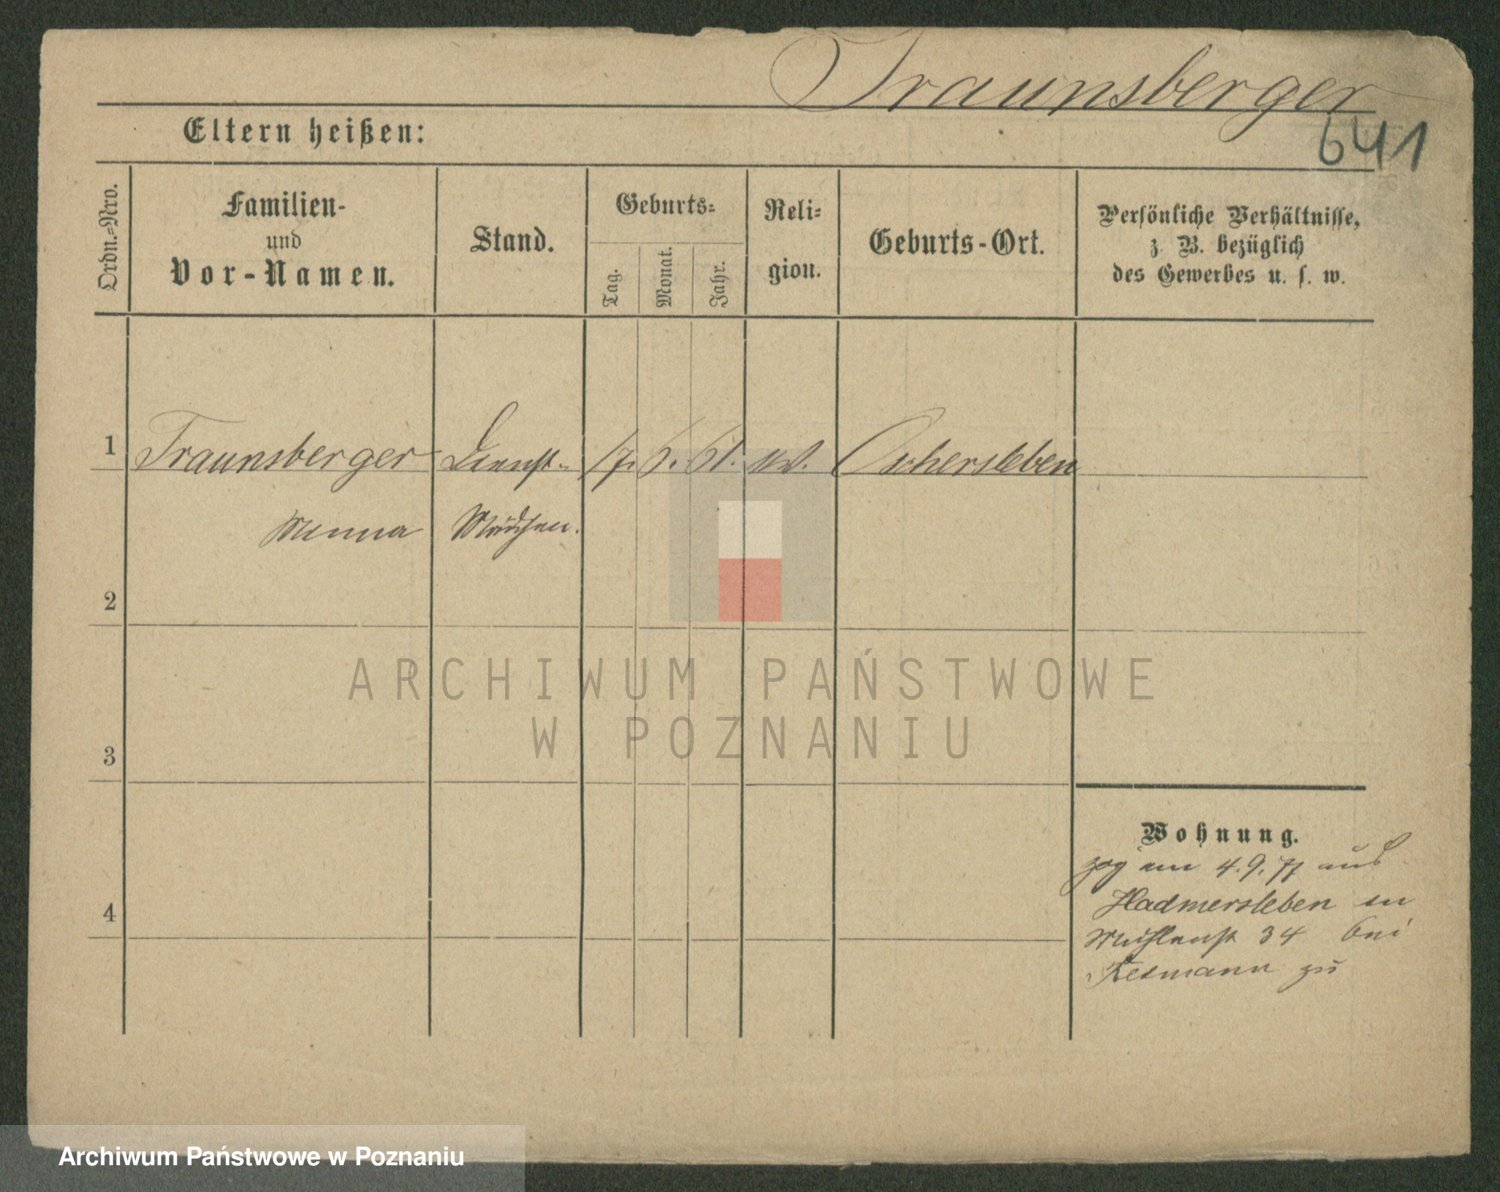 Traunsberger
641
Eltern heißen:
Ordn.=Nro.
Familien-
und
Vor-Namen.
Stand.
Geburts=
Tag.
Monat.
Jahr.
Reli=
gion.
Geburts-Ort.
Persönliche Verhältnisse,
z. B. bezüglich
des Gewerbes u. s. w.
1 Traunsberger Dienst- 17. 6. 61. ev. Oschersleben
Minna Mädchen.
2
ARCHIWUM PAŃSTWOWE
W POZNANIU
3
Wohnung.
zog am 4. 9. 77 aus
Hadmersleben in
4
Mühlenst 34 bei
zu
Archiwum Państwowe w Poznaniu